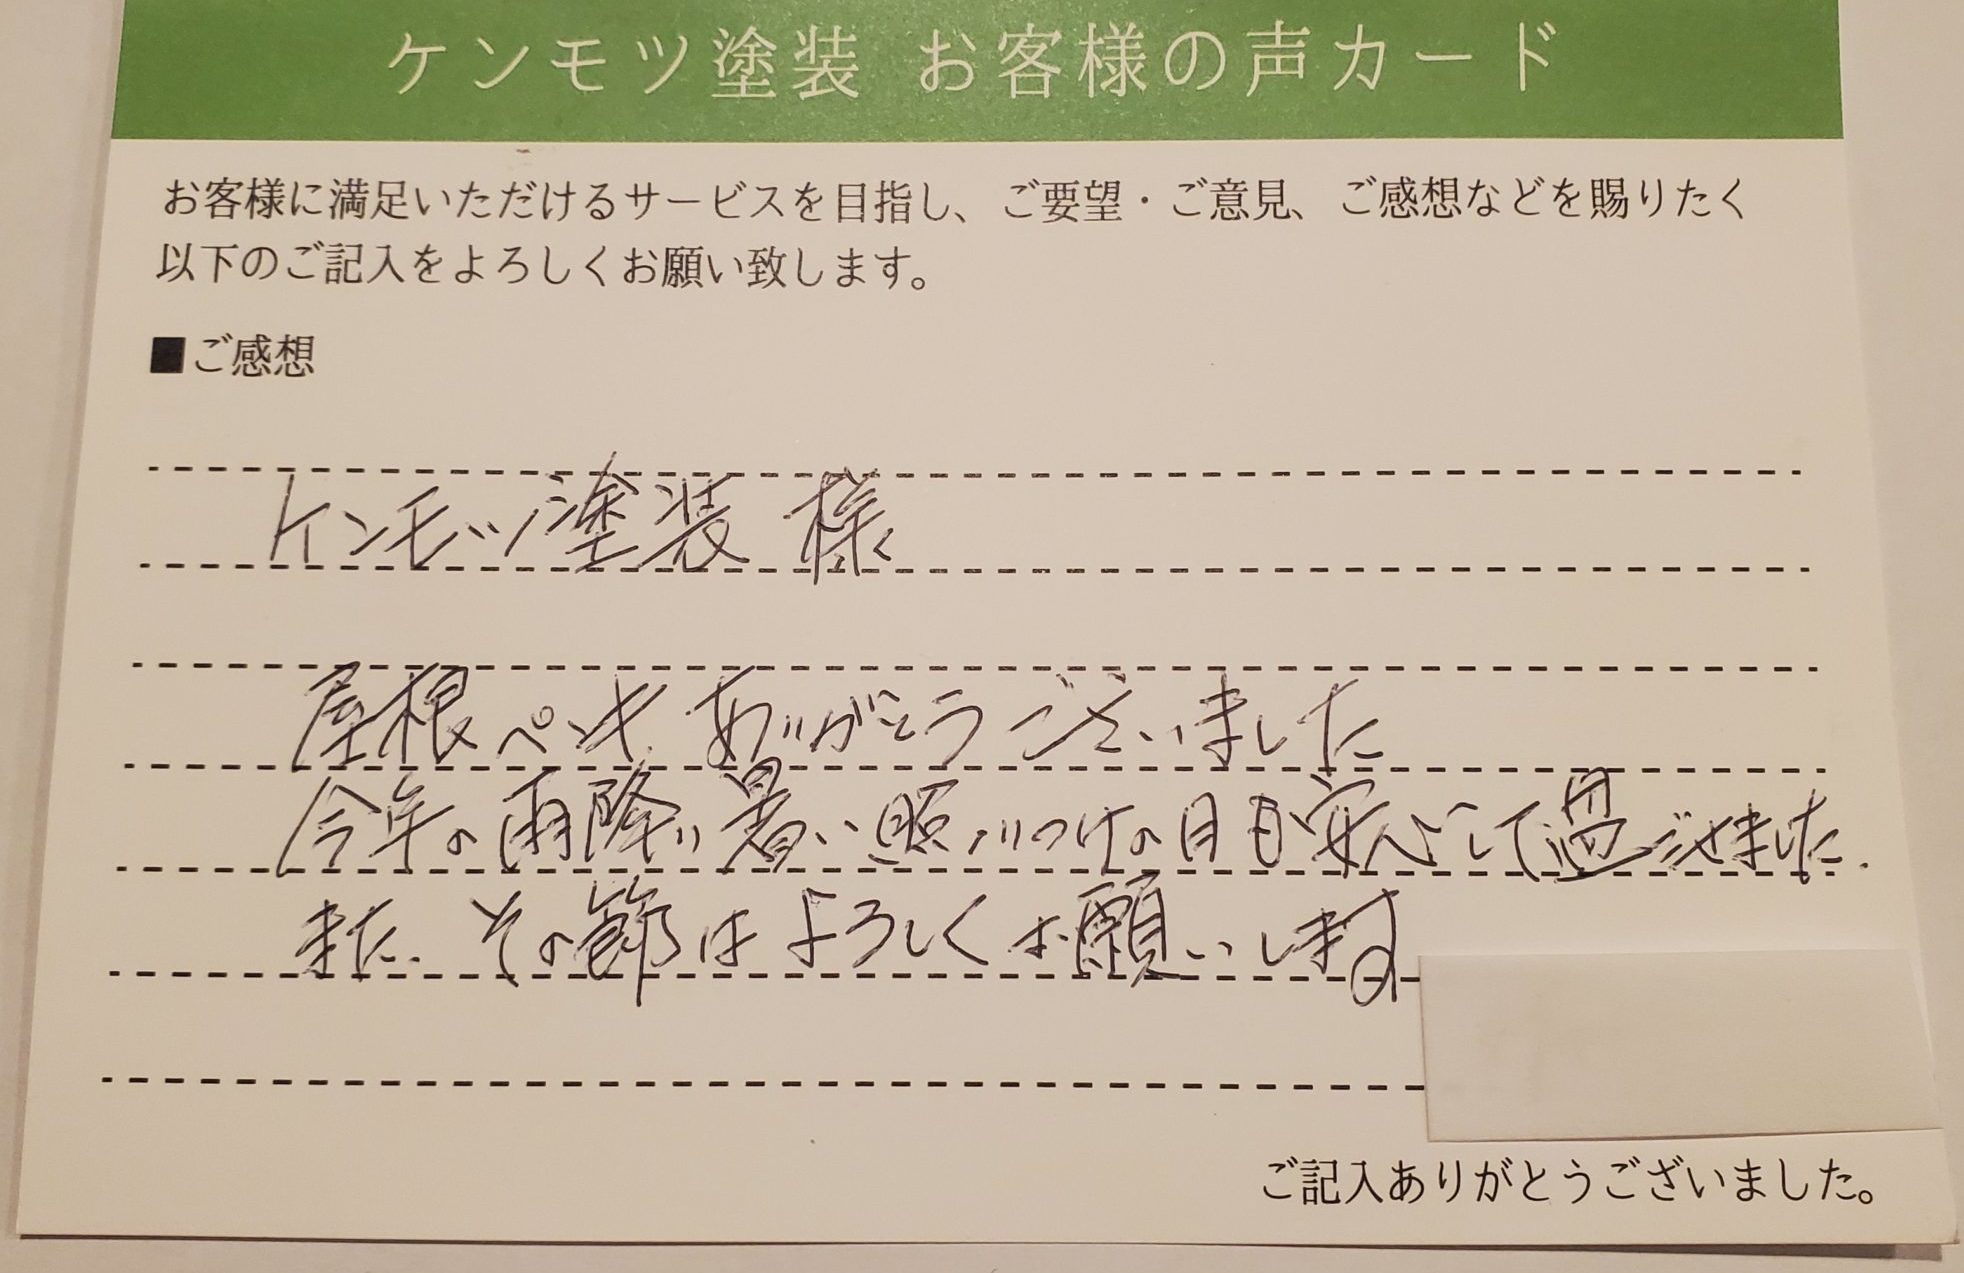 ケンモツ塗装 お客様の声カード
お客様に満足いただけるサービスを目指し、ご要望・ご意見、ご感想などを賜りたく
以下のご記入をよろしくお願い致します。
■ご感想
ケンモツ塗装 様
屋根ペンキ ありがとうございました
今年の雨降り暑い照りつけの日も安心して過ごせました.
また. その節はよろしくお願いします
ご記入ありがとうございました。